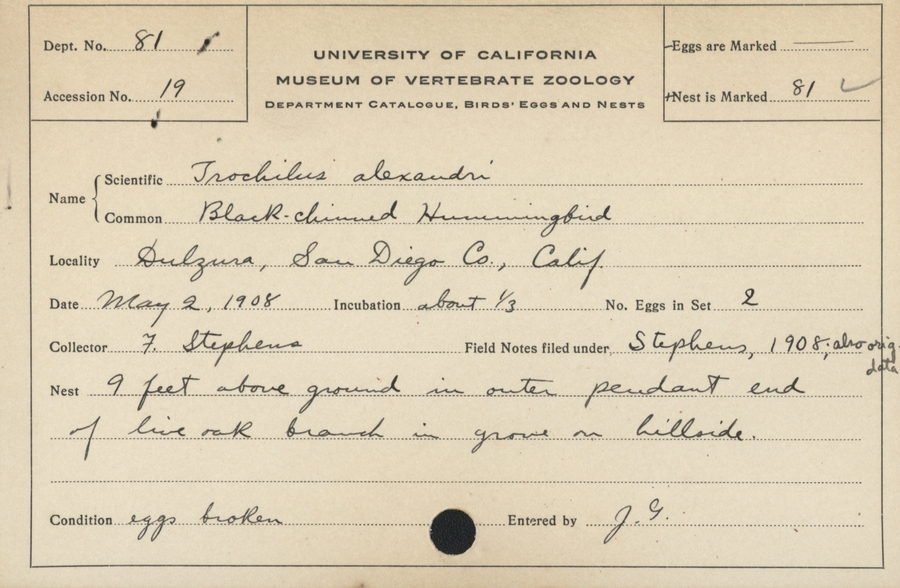 Dept. No. 81
Accession No. 19
UNIVERSITY OF CALIFORNIA
MUSEUM OF VERTEBRATE ZOOLOGY
DEPARTMENT CATALOGUE, BIRDS' EGGS AND NESTS
Eggs are Marked —
Nest is Marked 81 ✓
Name
Scientific Trochilus alexandri
Common Black-chinned Hummingbird
Locality Dulzura, San Diego Co., Calif.
Date May 2, 1908 Incubation about 1/3 No. Eggs in Set 2
Collector F. Stephens Field Notes filed under Stephens, 1908; also orig. data
Nest 9 feet above ground in outer pendant end
of live oak branch in grove on hillside.
Condition eggs broken Entered by J.G.